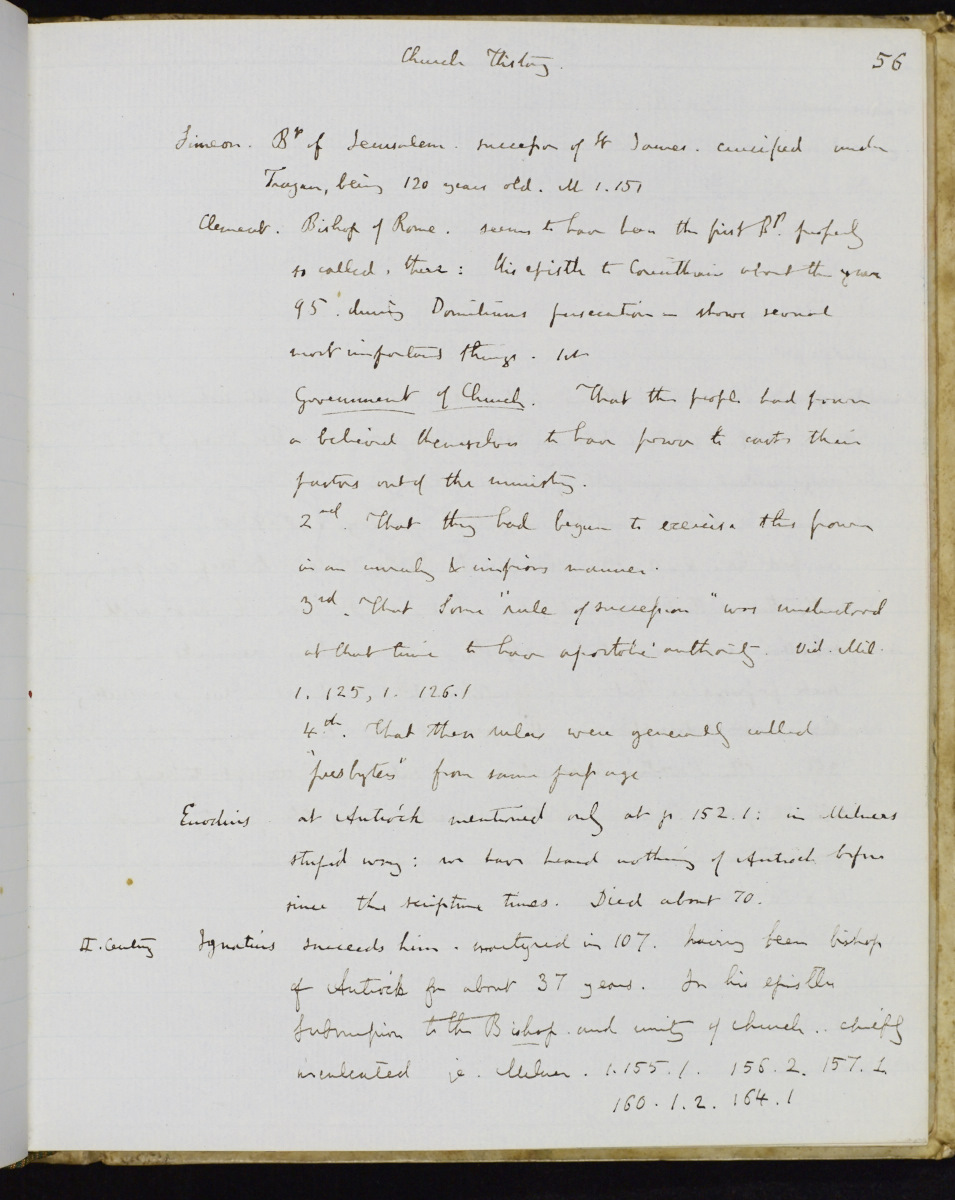 Church History.
56
Simeon. Bp of Jerusalem. succession of St James. crucified under
Trajan, being 120 years old. M 1.151
Clement. Bishop of Rome. seems to have been the first Bp. properly
so called, there: His epistle to Corinthians about the year
95. during Domitians persecution shows several
most important things. 1st
Government of Church. That the people had power
or believed themselves to have power to cast their
pastors out of the ministry.
2nd. That they had begun to exercise this power
in an unruly & impious manner.
3rd. That some "rule of succession" was understood
at that time to have apostolic authority. Vid. Mil.
1. 125, 1. 126.1
4th. That these rulers were generally called
"presbyters" from same passage
Evodius at Antioch mentioned only at p 152.1: in Milners
stupid way: we have heard nothing of Antioch before
since the scripture times. Died about 70.
II. Century Ignatius succeeds him. martyred in 107. having been bishop
of Antioch for about 37 years. In his epistles
Submission to the Bishop and unity of church.. chiefly
inculcated Milner. 1.155.1. 156.2. 157.1
160.1.2. 164.1